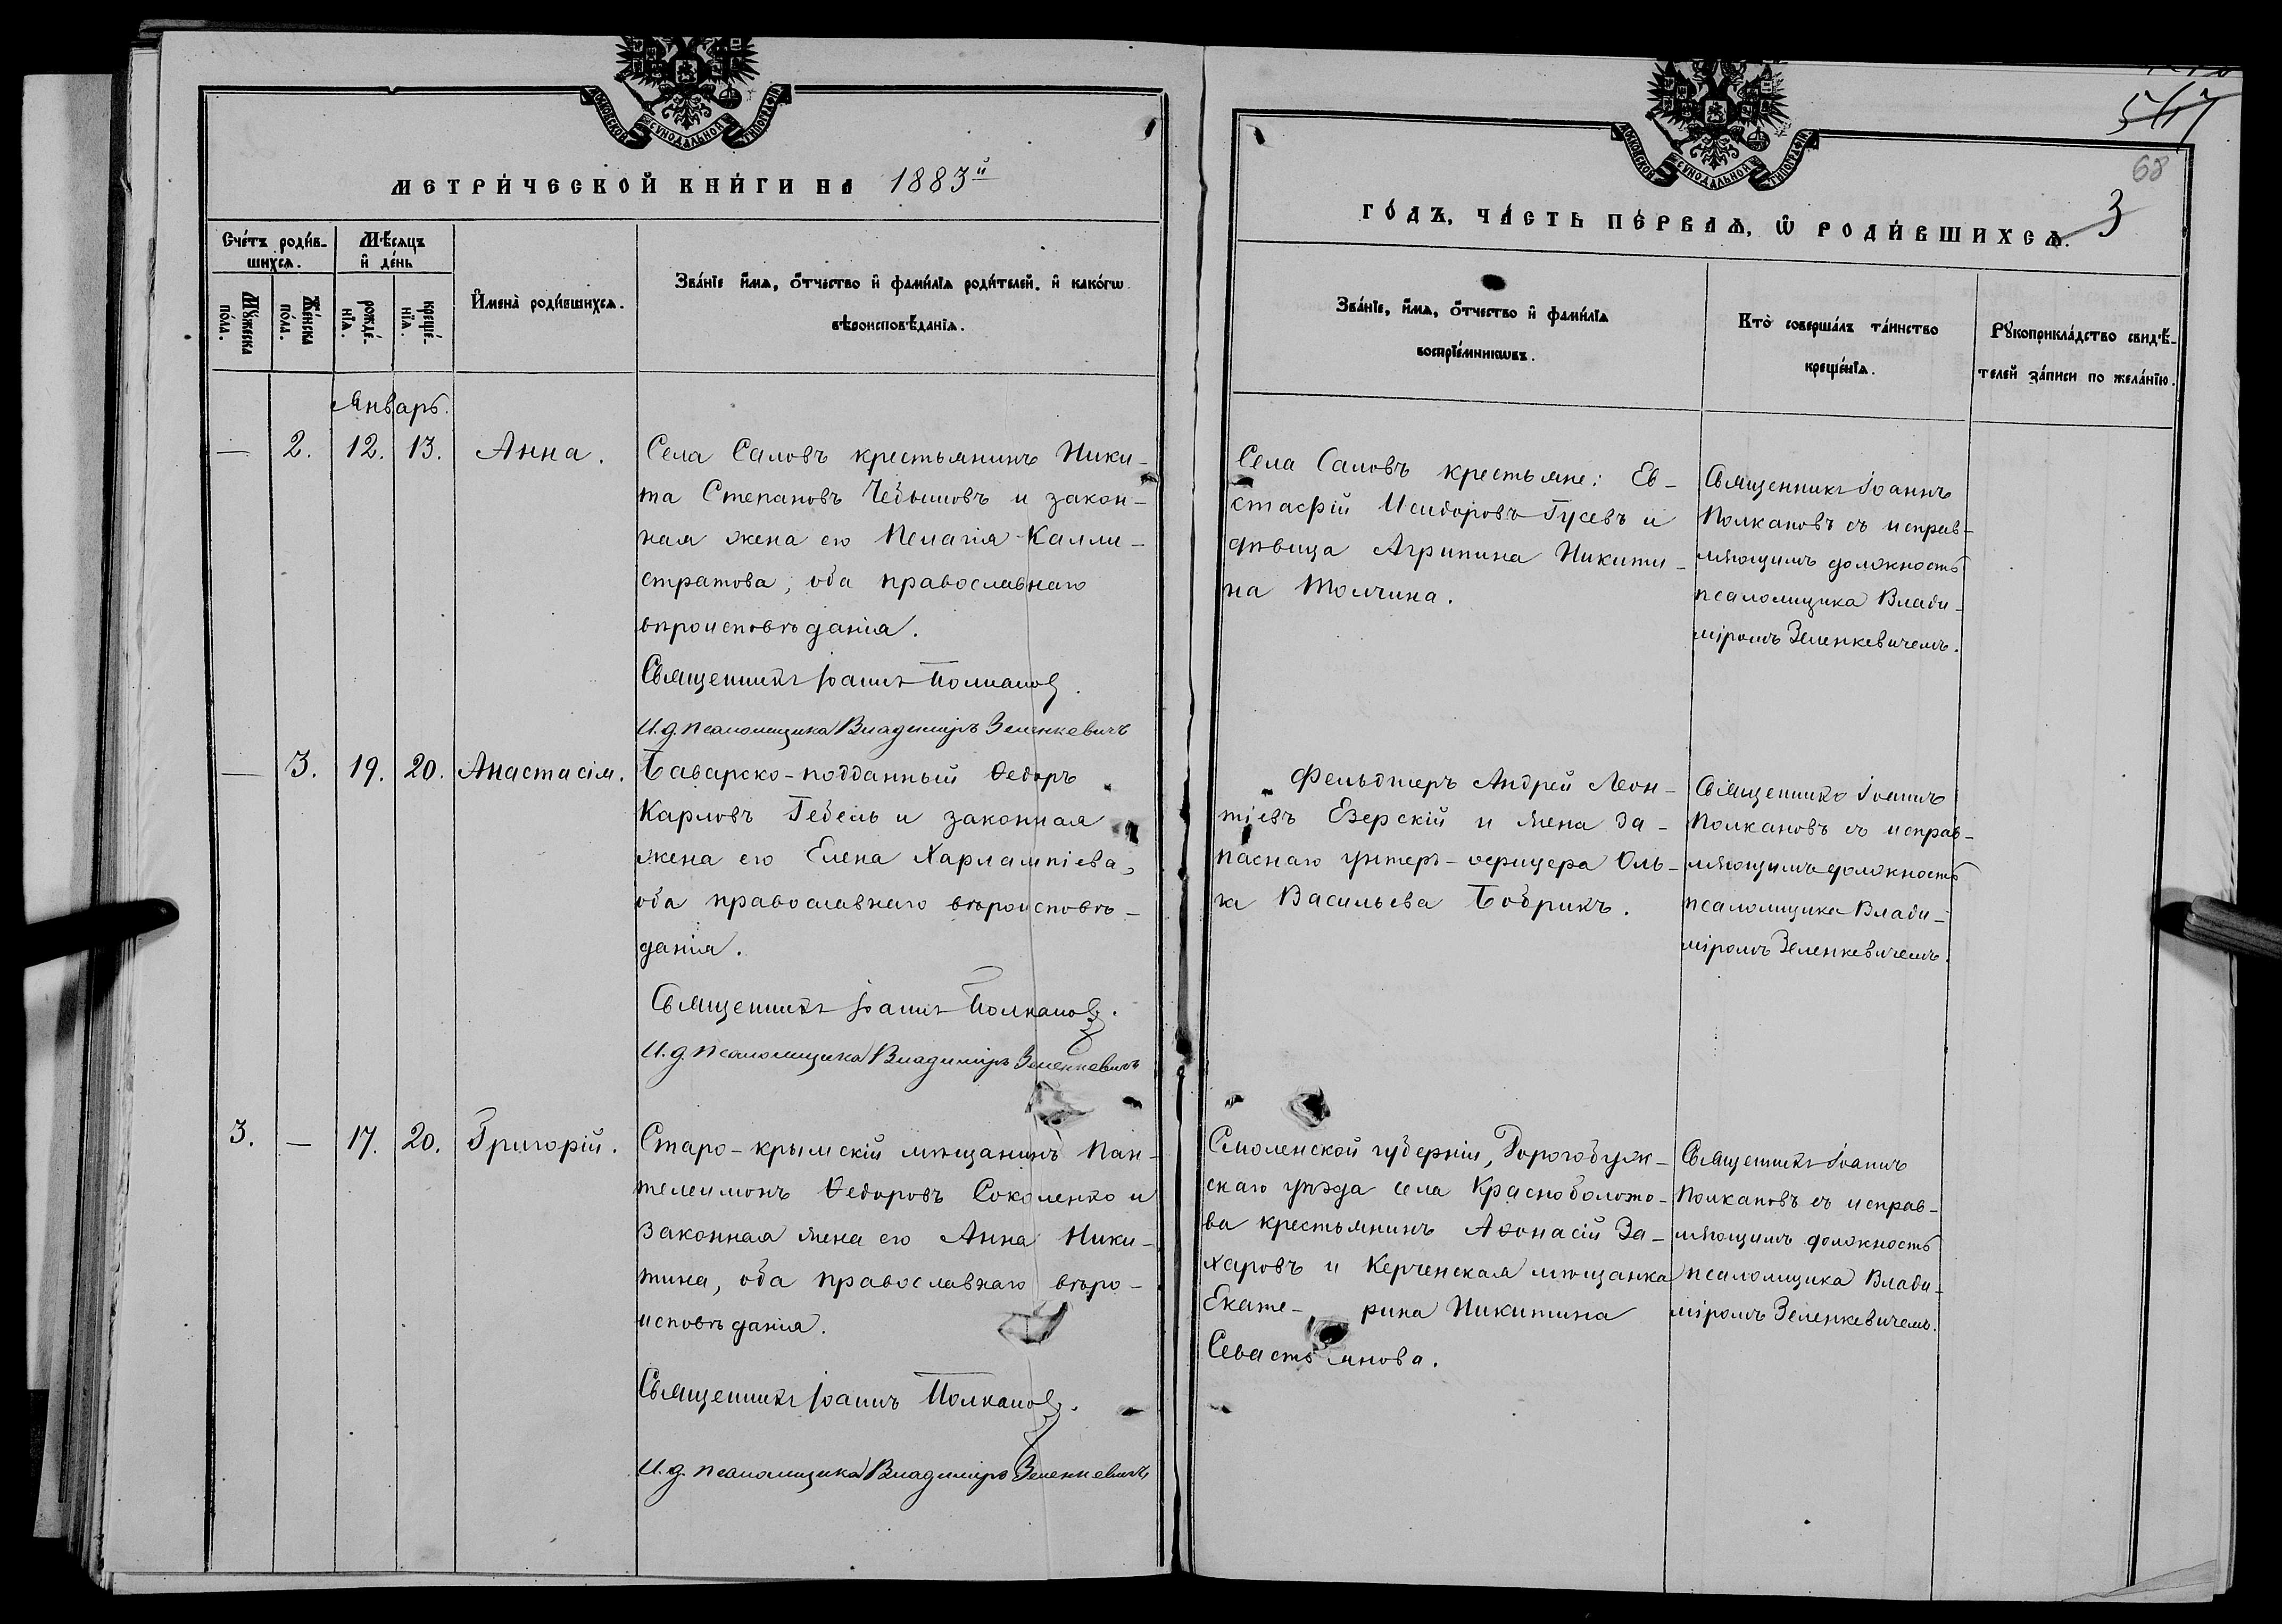 МОСКОВСКОЙ СѴНОДАЛЬНОЙ ТИПОГРАФІИ
МЕТРИ́ЧЕСКОЙ КНИ́ГИ НА 1883й
Сче́тъ роди́в-
шихсѧ.
Мѣ́сѧцъ
и҆ де́нь
Мꙋ́жеска
по́ла.
Же́нска
по́ла.
рожде́-
нїѧ.
креще́-
нїѧ.
И҆мена̀ роди́вшихсѧ.
Зва́нїе и҆́мѧ, ѻ҆́тчество и҆ фами́лїѧ роди́телей, и҆ како́гѡ
вѣроисповѣ́данїѧ.
Январь.
— 2. 12. 13. Анна.
Села Саловъ крестьянинъ Ники-
та Степановъ Чебышовъ и закон-
ная жена его Пелагія Калли-
стратова, оба православнаго
вѣроисповѣданія.
Священникъ Іоаннъ Полкановъ.
И.д. псаломщика Владиміръ Зеленкевичъ
— 3. 19. 20. Анастасія.
Баварско-подданный Ѳедоръ
Карловъ Гебель и законная
жена его Елена Харлампіева,
оба православнаго вѣроисповѣ-
данія.
Священникъ Іоаннъ Полкановъ.
И.д. псаломщика Владиміръ Зеленкевичъ
3. — 17. 20. Григорій.
Старо-крымскій мѣщанинъ Пан-
телеимонъ Ѳедоровъ Соколенко и
законная жена его Анна Ники-
тина, оба православнаго вѣро-
исповѣданія.
Священникъ Іоаннъ Полкановъ.
И.д. псаломщика Владиміръ Зеленкевичъ
МОСКОВСКОЙ СѴНОДАЛЬНОЙ ТИПОГРАФІИ
68
3
ГО́ДЪ, ЧА́СТЬ ПЕ́РВАѦ, Ѡ҆ РОДИ́ВШИХСѦ.
Зва́нїе, и҆́мѧ, ѻ҆́тчество и҆ фами́лїѧ
воспрїе́мникѡвъ.
Кто̀ соверша́лъ та́инство
креще́нїѧ.
Рꙋкоприкла́дство свидѣ́-
телей за́писи по жела́нїю.
Села Саловъ крестьяне: Ев-
стафій Исидоровъ Гусевъ и
дѣвица Агрипина Никити-
на Толчина.
Священникъ Іоаннъ
Полкановъ съ исправ-
ляющимъ должность
псаломщика Влади-
міромъ Зеленкевичемъ.
Фельдшеръ Андрей Леон-
тіевъ Езерскій и жена за-
паснаго унтеръ-офицера Оль-
га Васильева Бобрикъ.
Священникъ Іоаннъ
Полкановъ съ исправ-
ляющимъ должность
псаломщика Влади-
міромъ Зеленкевичемъ.
Смоленской губерніи, Дорогобуж-
скаго уѣзда села Красноболото-
ва крестьянинъ Аѳонасій За-
харовъ и Керченская мѣщанка
Екате- рина Никитина
Севастьянова.
Священникъ Іоаннъ
Полкановъ съ исправ-
ляющимъ должность
псаломщика Влади-
міромъ Зеленкевичемъ.